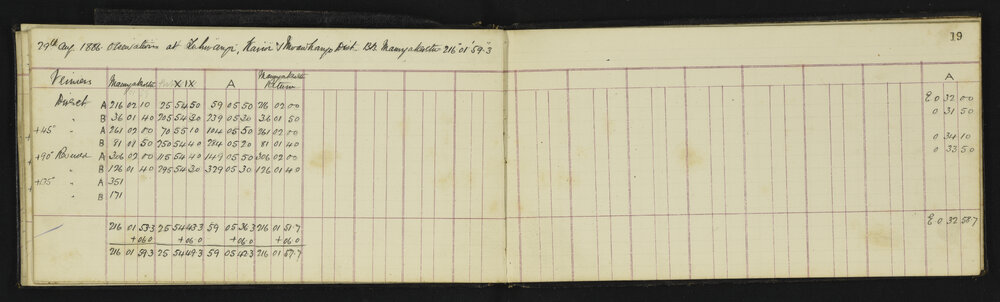 19
29th Aug. 1886 Observations at
216° 01' 59.3
Verniers XIX A Return A
Direct A 216 02 10 25 54 50 59 05 50 216 02 00 E 0 32 00
" B 36 01 40 205 54 30 239 05 30 36 01 50 0 31 50
+45° " A 261 02 00 70 55 10 104 05 50 261 02 00 0 34 10
" B 81 01 50 250 54 40 284 05 20 81 01 40 0 33 50
+90° A 306 02 00 115 54 40 149 05 50 306 02 00
" B 126 01 40 295 54 30 329 05 30 126 01 40
" A 351
" B 171
216 01 53.3 25 54 43.3 59 05 36.3 216 01 51.7 E 0 32 58.7
+06.0 +06.0 +06.0 +06.0
216 01 59.3 25 54 49.3 59 05 42.3 216 01 57.7